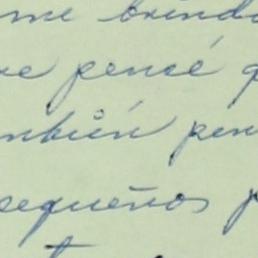 me brinda
pensé
mbién pen
pequeños p